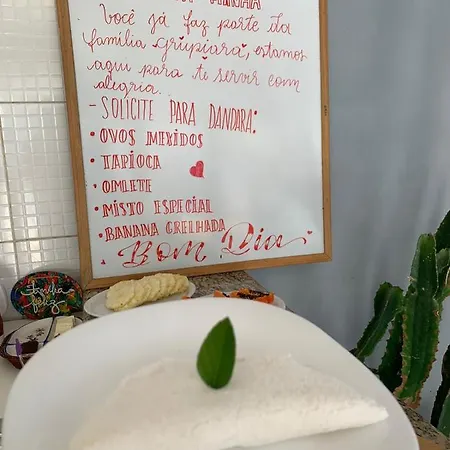 Você já faz parte da
família grupiara, estamos
aqui para te servir com
alegria.
- SOLICITE PARA DANDARA:
• OVOS MEXIDOS
• TAPIOCA
• OMLETE
• MISTO ESPECIAL
• BANANA GRELHADA
Bom Dia
família
feliz